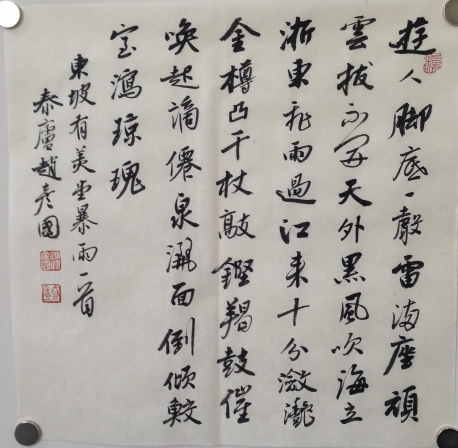 遊人脚底一聲雷满座頑
雲拔不开天外黑風吹海立
浙東飛雨過江来十分潋灔
金樽凸千杖敲鏗羯鼓催
唤起謫僊泉灑面倒傾鮫
室瀉琼瑰
東坡有美堂暴雨一首
泰廬趙彦國